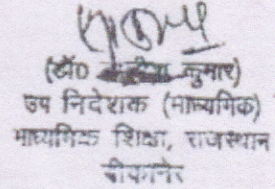 (डॉ0 कुमार)
उप निदेशक (माध्यमिक)
माध्यमिक शिक्षा, राजस्थान
बीकानेर